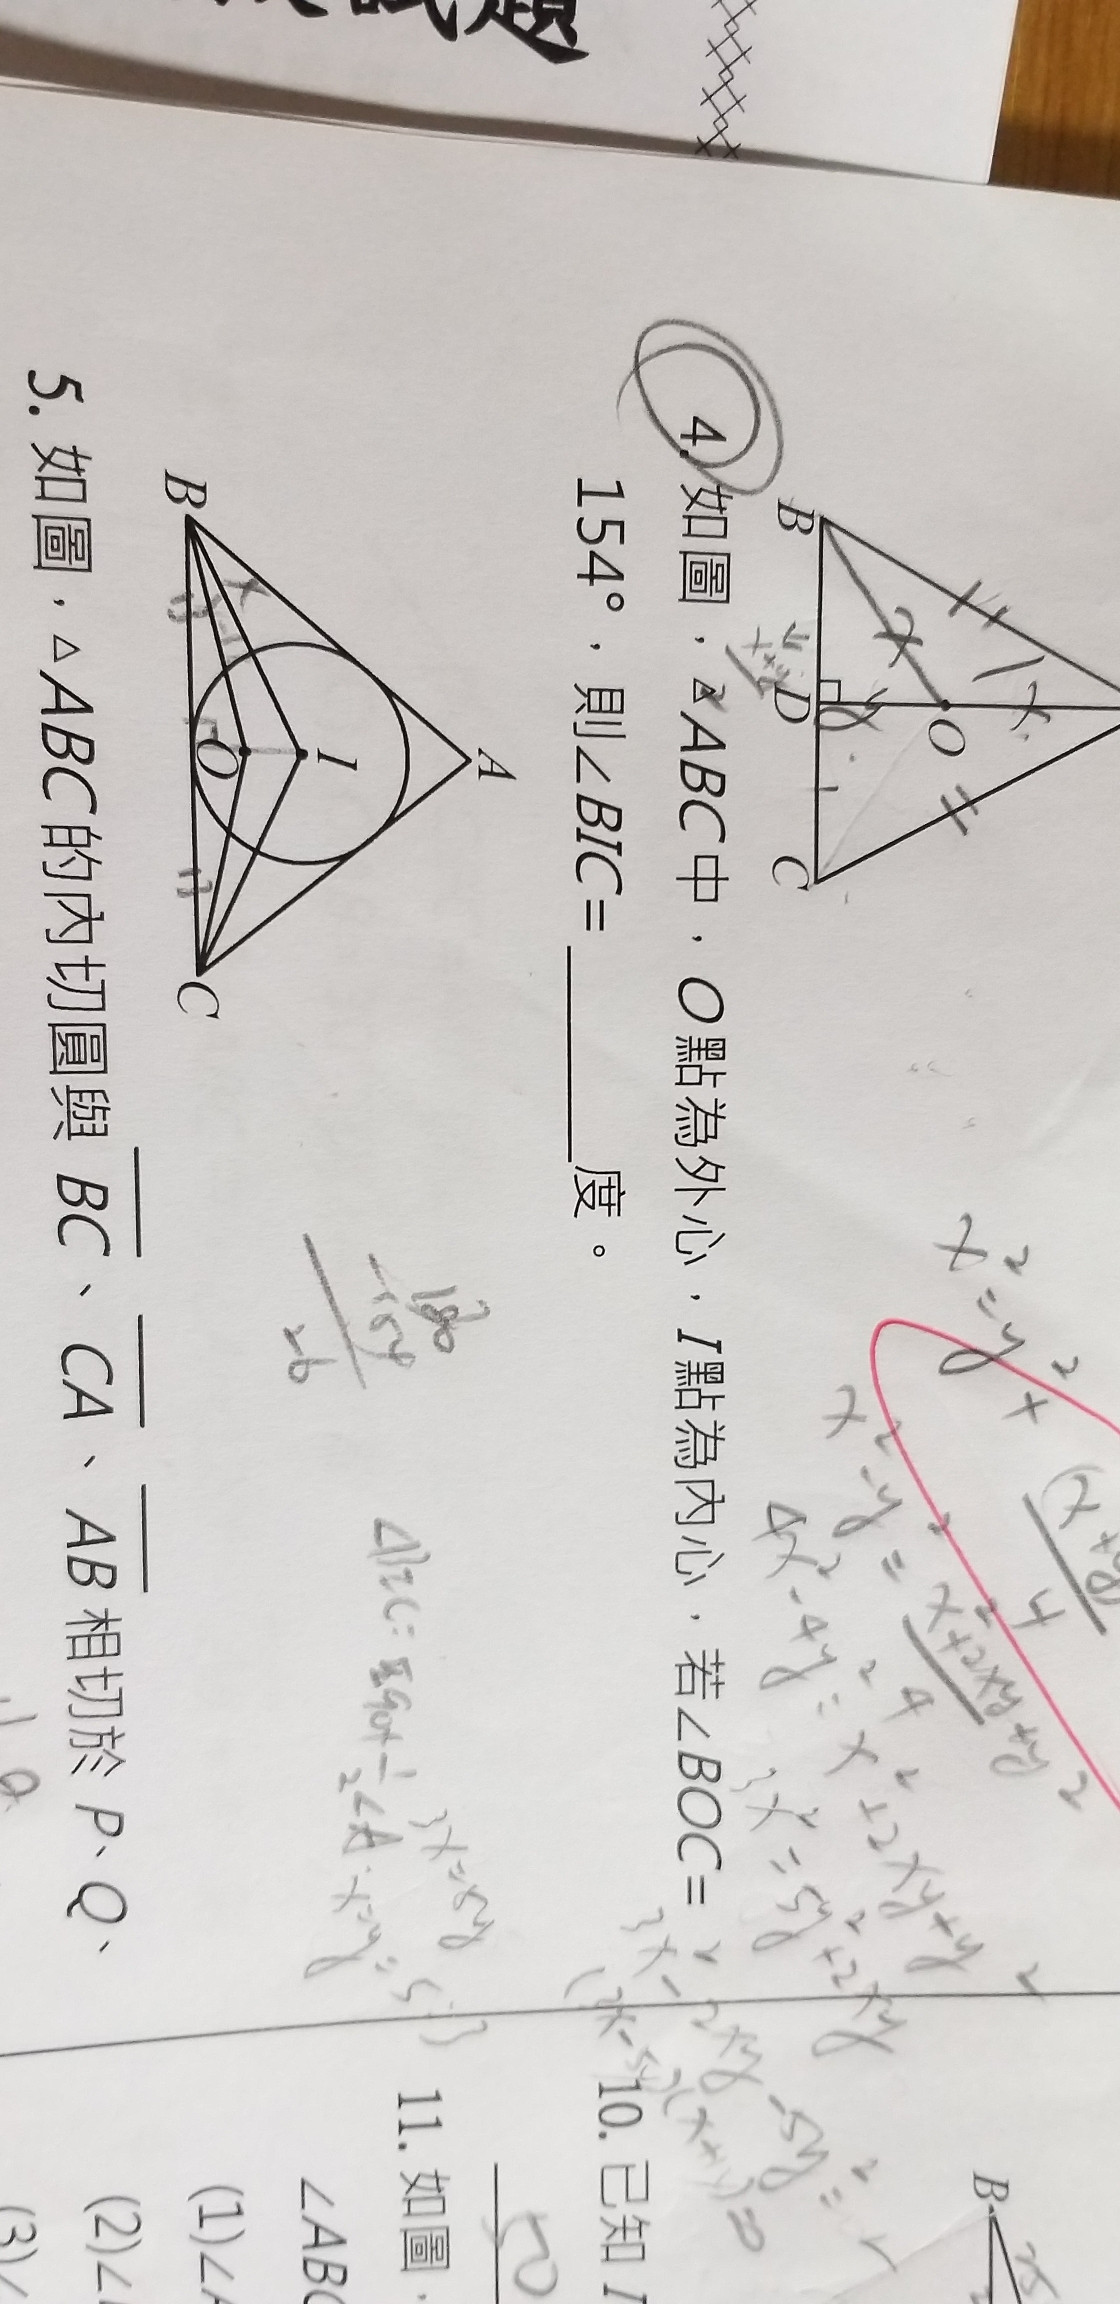 試題
B
D
O
C
4. 如圖，△ABC中，O點為外心，I點為內心，若∠BOC=
154°，則∠BIC=________度。
A
I
O
B
C
5. 如圖，△ABC的內切圓與 BC、CA、AB 相切於 P、Q、
10. 已知 I
50
11. 如圖，
∠ABC
(1)∠A
(2)∠
(3)∠
B
x² = y² +
x² - y² = x²+2xy+y²
4
4x² - 4y² = x² + 2xy + y²
3x² = 5y² + 2xy
3x² - 2xy - 5y² =
3x=5y
x=y=5:3
180
-154
26